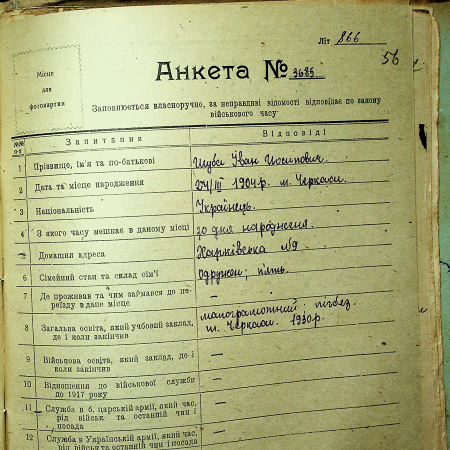 Літ 866
56
Місце
для
фотокартки
Анкета № 3685
Заповнюється власноручно, за неправдиві відомості відповідає по закону
військового часу
№№ п-п Запитання Відповіді
1 Прізвище, ім'я та по-батькові Шуба Іван Йосипович.
2 Дата та місце народження 24/III 1904 р. м. Черкаси.
3 Національність Українець.
4 З якого часу мешкає в даному місці зо дня народження.
5 Домашня адреса Харківська №9
6 Сімейний стан та склад сім'ї Одружен; п'ять.
7 Де проживав та чим займався до переїзду в дане місце —
8 Загальна освіта, який учбовий заклад, де і коли закінчив малограмотний, лікбез.
м. Черкаси. 1930 р.
9 Військова освіта, який заклад, де і коли закінчив —
10 Відношення до військової служби до 1917 року —
11 Служба в б. царській армії, який час, рід військ та останній чин і посада —
12 Служба в Українській армії, який час, рід військ та останній чин і посада —